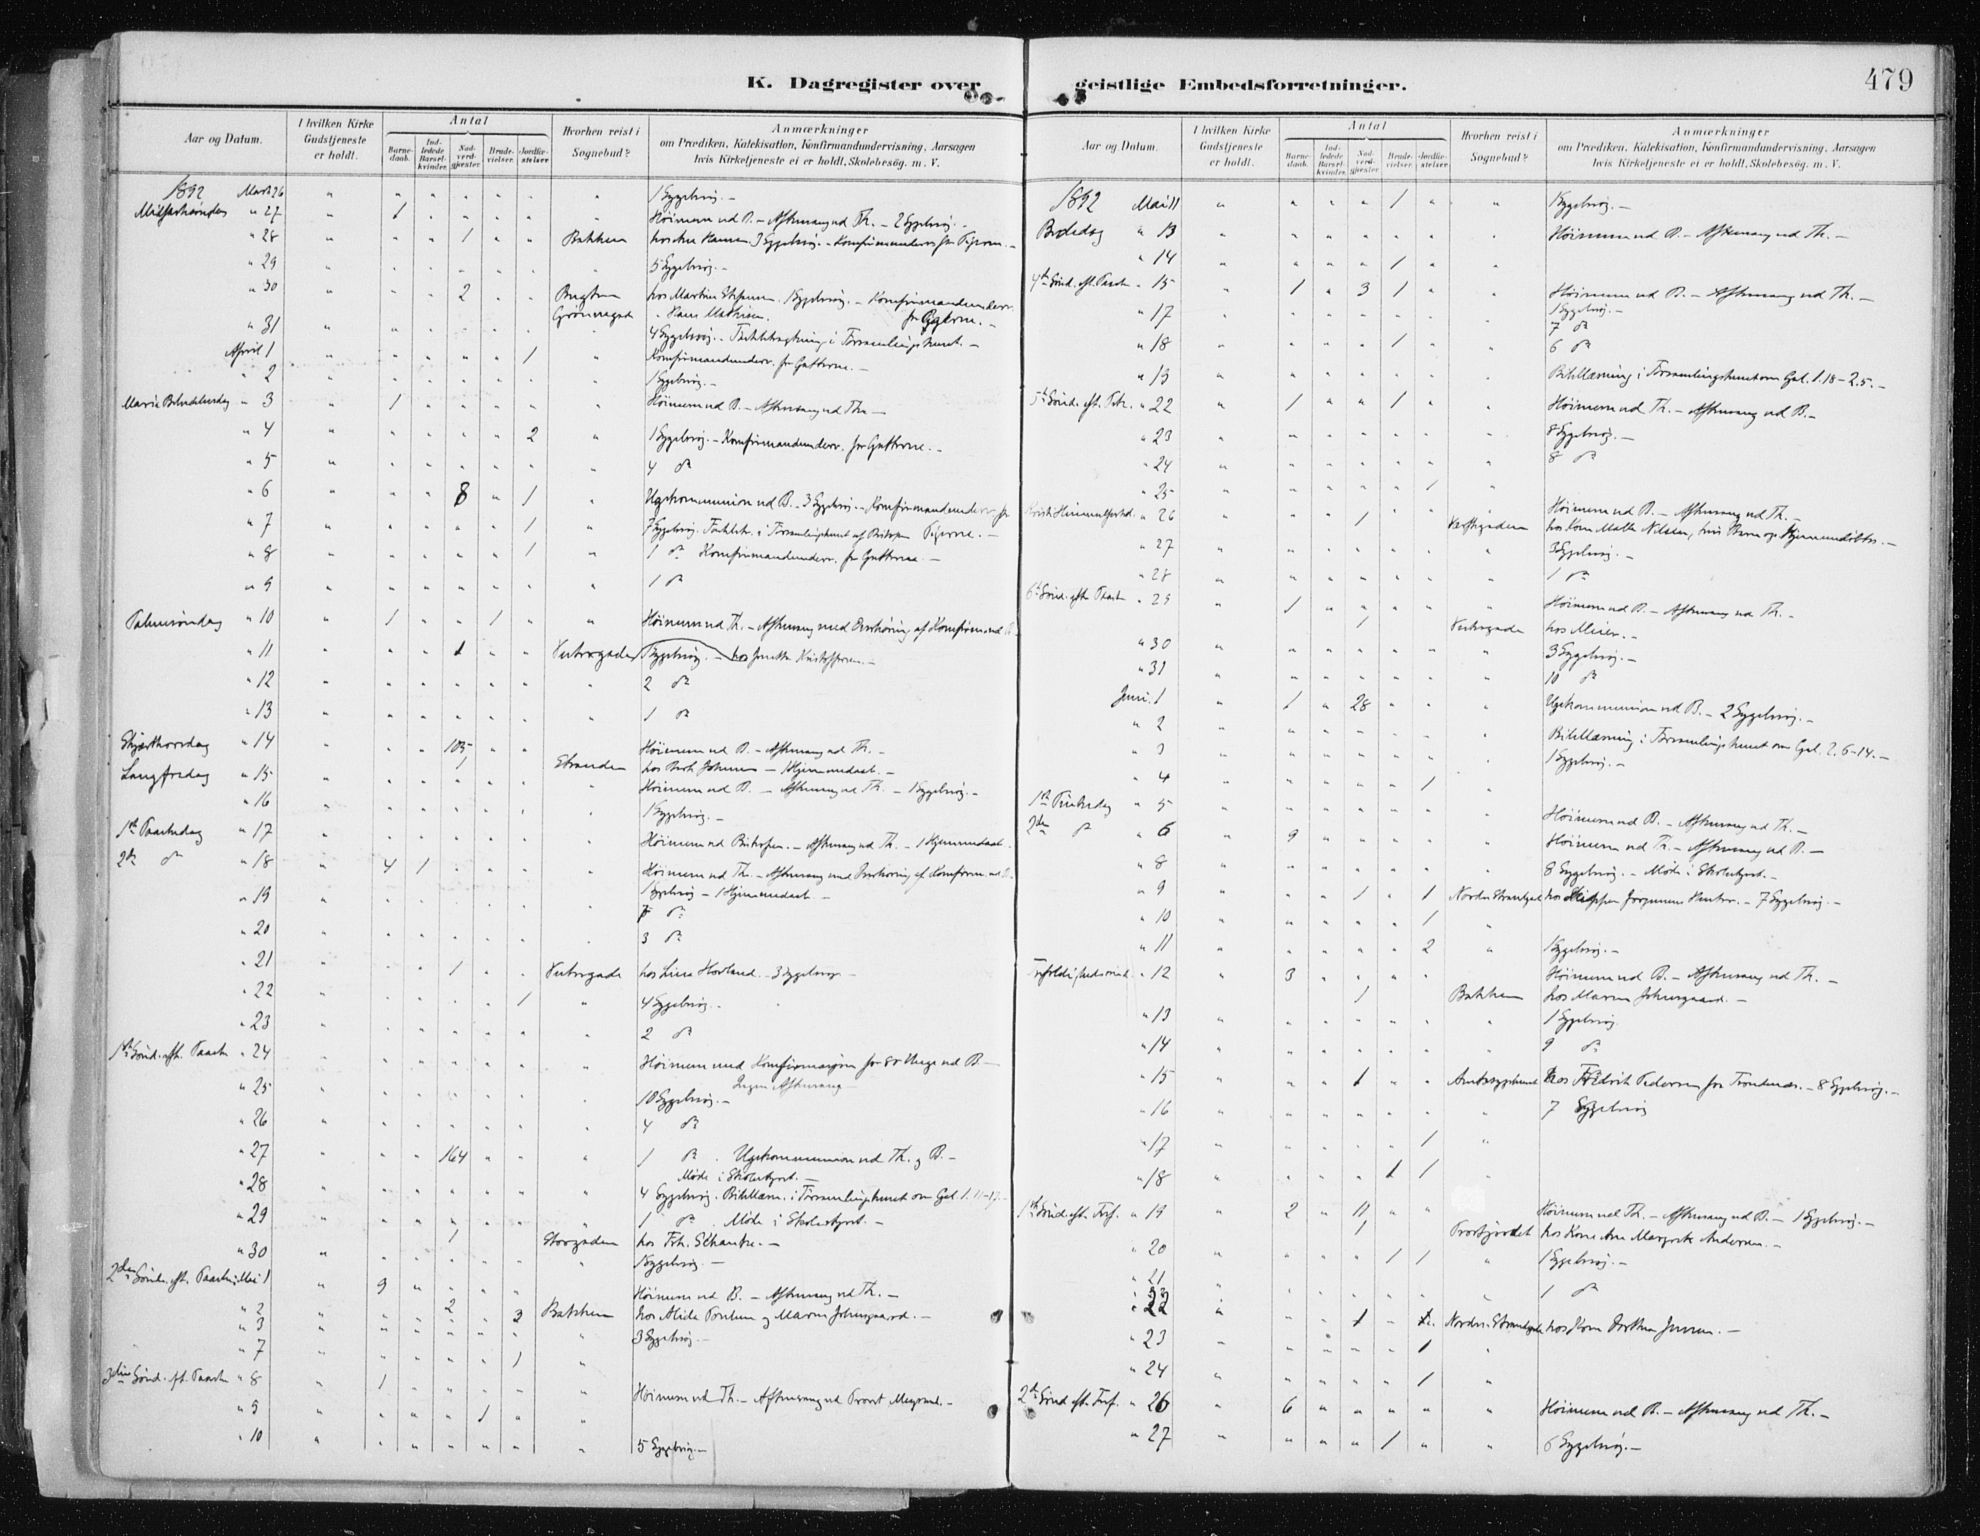 K. Dagregister over geistlige Embedsforretninger.
479
Aar og Datum.
I hvilken Kirke Gudstjeneste er holdt.
Antal
Barne-daab.
Ind-ledede Barsel-kvinder.
Nad-verd-gjester
Brude-vielser.
Jordfæ-stelser
Hvorhen reist i Sognebud?
Anmærkninger
om Prædiken, Katekisation, Konfirmandundervisning, Aarsagen
hvis Kirketjeneste ei er holdt, Skolebesøg. m. V.
1892 Marts 26 " " " " " " " 1 Sygebesøg. –
" 27 " 1 " " " " " Høimesse ved B. – Aftensang ved Th. – 2 Sygebesøg. –
" 28 " " " 1 " " Bakken
" 29 " " " " " " " 5 Sygebesøg. –
" 30 " " " 2 " "
Grønnegade
" 31
4 Sygebesøg.
April 1 " " " " " 1 " Konfirmandunderv. for Gutterne. –
" 2 " " " " " " " 1 Sygebesøg. –
Mariæ Bebudelsesdag " 3 " 1 " " " " " Høimesse ved B. – Aftensang ved Th. –
" 4 " " " " " 2 " 1 Sygebesøg. – Konfirmandunderv. for Gutterne. –
" 5 " " " " " " " 4 do
" 6 " " " 8 " 1 " Ugekommunion ved B. – 3 Sygebesøg. – Konfirmandunderv. for
" 7 " " " " " 1 " 7 Sygebesøg. Pigerne. –
" 8 " " " " " 1 " 1 do Konfirmandunderv. for Gutterne –
" 9 " " " " " " " 1 do
Palmesøndag " 10 " 1 " " 1 " " Høimesse ved Th. – Aftensang med Overhøring af Konfirmand.
" 11 " " " 1 " " Vestregade 1 Sygebesøg. –
" 12 " " " " " " " 2 do
" 13 " " " " " " " 1 do
Skjærthorsdag " 14 " " " 105 " " " Høimesse ved B. – Aftensang ved Th. –
1 Stranden 1 Hjemmedaab. –
Langfredag " 15 " " " " " " Høimesse ved B. – Aftensang ved Th. – 1 Sygebesøg. –
" 16 " " " " " " " 1 Sygebesøg. –
1ste Paaskedag " 17 " " " " " " " Høimesse ved Bishopen. – Aftensang ved Th. – 1 Hjemmedaab.
2de do " 18 " 4 1 " " " " Høimesse ved Th. – Aftensang
1 Sygebesøg – 1 Hjemmedaab. –
" 19 " " " " " " " 7 do
" 20 " " " " " " " 3 do
" 21 " " " 1 " " Vestregade hos Lina Hovland. – 3 Sygebesøg –
" 22 " " " " " 1 " 4 Sygebesøg. –
" 23 " " " " " " " 2 do
1ste Sønd. eft. Paaske " 24 " " " " " " " Høimesse med Konfirmasjon for 85 Unge ved B –
Ingen Aftensang
" 25 " " " " " " " 10 Sygebesøg. –
" 26 " " " " " " " 4 do
" 27 " " " 164 " " " 1 do. Ugekommunion ved Th. og B. –
Møde i Skolestyret. –
" 28 " " " " " " " 4 Sygebesøg. Bibellæsn. i Forsamlingshuset om Gal. 1. 11–17.
" 29 " " " " " " " 1 do. Møde i Skolestyret. –
1 Storgaden hos Frk. Schanke. –
" 30 " " " " " " " 1 Sygebesøg. –
2den Sønd. eft. Paaske Mai 1 " 9 " " " " Høimesse ved B. – Aftensang ved Th. –
" 2 " " " 2 " 3 Bakken
" 3 " " " " " " " 3 Sygebesøg. –
" 7 " " " " " 1 "
3die Sønd. eft. Paaske " 8 " 1 " " " " " Høimesse ved Th. – Aftensang ved Provst
" 9 " " " " 1 " "
" 10 " " " " " " " 5 Sygebesøg. –
Aar og Datum.
I hvilken Kirke Gudstjeneste er holdt.
Antal
Barne-daab.
Ind-ledede Barsel-kvinder.
Nad-verd-gjester
Brude-vielser.
Jordfæ-stelser.
Hvorhen reist i Sognebud?
Anmærkninger
om Prædiken, Katekisation, Konfirmandundervisning, Aarsagen
hvis Kirketjeneste ei er holdt, Skolebesøg. m. V.
1892 Mai 11 " " " " 1 " " 1 Sygebesøg. –
Bededag " 13 " " " " " " " Høimesse ved B. – Aftensang ved Th. –
" 14 " " " " 1 " "
4de Sønd. eft. Paaske " 15 " 1 " 3 1 " " Høimesse ved B. – Aftensang ved Th. –
1 Sygebesøg. –
" 17 " " " " " " " 7 do
" 18 " " " " 1 " " 6 do
" 19 " " " " " " " Bibellæsning i Forsamlingshuset om Gal. 1. 18 – 2. 5. –
5te Sønd. eft. Pske. " 22 " 1 " " 1 " " Høimesse ved Th. – Aftensang ved B. –
" 23 " " " " " " " 8 Sygebesøg. –
" 24 " " " " " " " 8 do
" 25 " " " " " 1 "
Kristi Himmelfartsd. " 26 " " " 1 " " Høimesse ved B. – Aftensang ved Th. –
Verftsgaden
" 27 " " " " " " " 3 Sygebesøg. –
" 28 " " " " " " " 1 do
6te Sønd. efter Paaske " 29 " 1 " " " " " Høimesse ved B. – Aftensang ved Th. –
1 Vestregade hos Meier. –
" 30 " " " " " " " 3 Sygebesøg. –
" 31 " " " " " " " 10 do
Juni 1 " 1 " 28 " " " Ugekommunion ved B. – 2 Sygebesøg. –
" 2 " " " " " " " Bibellæsning i Forsamlingshuset om Gal. 2. 6–14. –
" 3 " " " " " " " 1 Sygebesøg. –
" 4 " " " " " 1 "
1ste Pintsedag " 5 " " " " " " " Høimesse ved B. – Aftensang ved Th. –
2den do " 6 " 9 " " " " " Høimesse ved Th. – Aftensang ved B. –
" 8 " " " " " " " 8 Sygebesøg. – Møde i Skolestyret. –
" 9 " " " 1 " 1 Nordre Strandgade 7 Sygebesøg. –
" 10 " " " " " 1 "
" 11 " " " " " 2 " 1 Sygebesøg. –
" 12 " 3 " " " " Høimesse ved B. – Aftensang ved Th. –
1 Bakken
" 13 " " " " " " " 1 Sygebesøg
" 14 " " " " " " " 9 do
" 15 " " " 1 " " Amtssygehuset hos Fredrik Pedersen fra Trondenæs. – 8 Sygebesøg. –
" 16 " " " " " " " 7 Sygebesøg
" 17 " " " " " 1 "
" 18 " " " " 1 1
1ste Sønd. eft. Tref. " 19 " 2 " 11 " " Høimesse ved Th. – Aftensang ved B. – 1 Sygebesøg. –
1 hos Kone Ane Margrete Andersen. –
" 20 " " " " 1 1 " 1 Sygebesøg. –
" 21 " " " " " " " 1 do
" 22 " " " 1 " 1 Nordre Strandgade
" 23 " " " " " 1 "
" 24 " " " " " 1 "
2de Sønd eft. Tref. " 26 " 6 " " " " " Høimesse ved B. – Aftensang ved Th. –
" 27 " " " " 1 " " 6 Sygebesøg. –